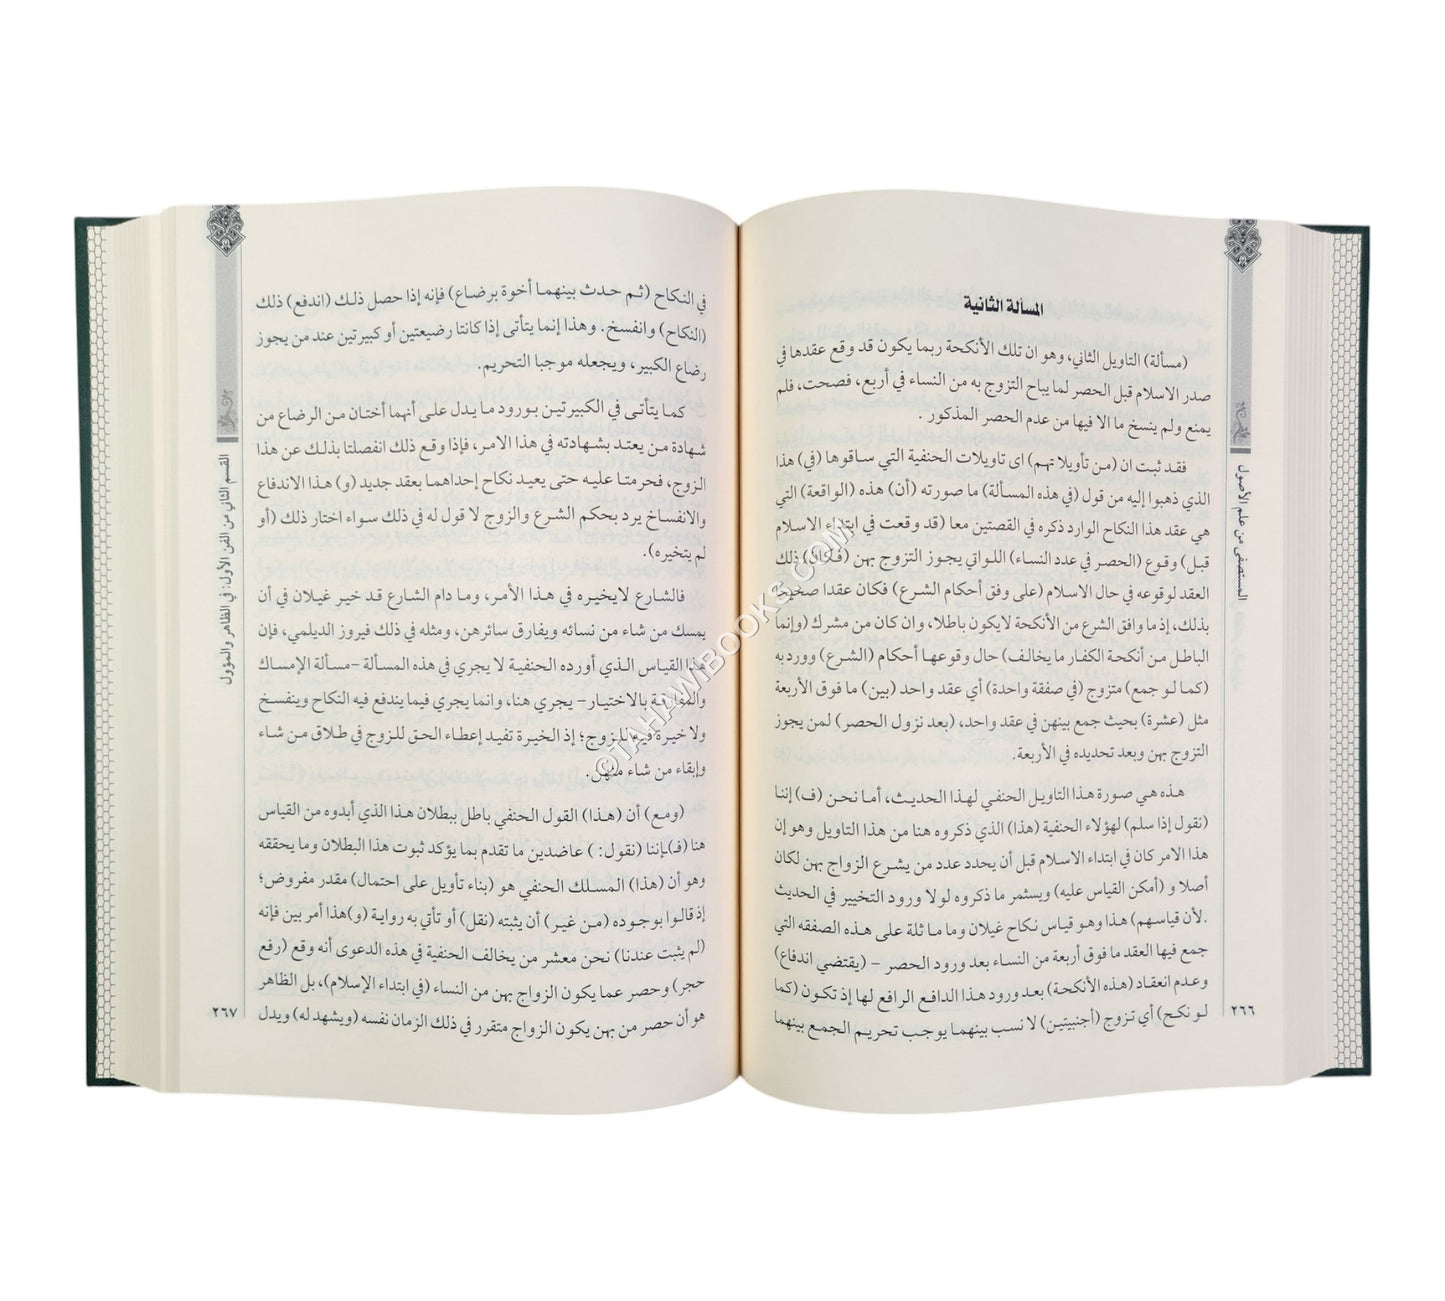 المسألة الثانية
(مسألة) التاويل الثاني، وهو ان تلك الأنكحة ربما يكون قد وقع عقدها في
صدر الاسلام قبل الحصر لما يباح التزوج به من النساء في أربع، فصحت، فلم
يمنع ولم ينسخ ما الا فيها من عدم الحصر المذكور .
فقد ثبت ان (من تأويلاتهم) اى تاويلات الحنفية التي ساقوها (في) هذا
الذي ذهبوا إليه من قول (في هذه المسألة) ما صورته (أن) هذه (الواقعة) التي
هي عقد هذا النكاح الوارد ذكره في القصتين معا (قد وقعت في ابتداء الاسلام
قبل) وقوع (الحصر في عدد النساء) اللواتي يجوز التزوج بهن (فكان) ذلك
العقد لوقوعه في حال الاسلام (على وفق أحكام الشرع) فكان عقدا صحيحا
بذلك، إذ ما وافق الشرع من الأنكحة لايكون باطلا، وان كان من مشرك (وإنما
الباطل من أنكحة الكفار ما يخالف) حال وقوعها أحكام (الشرع) وورد به
(كما لو جمع) متزوج (في صفقة واحدة) أي عقد واحد (بين) ما فوق الأربعة
مثل (عشرة) بحيث جمع بينهن في عقد واحد، (بعد نزول الحصر) لمن يجوز
التزوج بهن وبعد تحديده في الأربعة.
هذه هي صورة هذا التاويل الحنفي لهذا الحديث، أما نحن (ف) إننا
(نقول إذا سلم) لهؤلاء الحنفية (هذا) الذي ذكروه هنا من هذا التاويل وهو إن
هذا الامر كان في ابتداء الاسلام قبل أن يحدد عدد من يشرع الزواج بهن لكان
أصلا و (أمكن القياس عليه) ويستثمر ما ذكروه لولا ورود التخيير في الحديث
.لأن قياسهم) هذا وهو قياس نكاح غيلان وما ما ثلة على هذه الصفقه التي
جمع فيها العقد ما فوق أربعة من النساء بعد ورود الحصر – (يقتضي اندفاع)
وعدم انعقاد (هذه الأنكحة) بعد ورود هذا الدافع الرافع لها إذ تكون (كما
لو نكح) أي تزوج (أجنبيتين) لا نسب بينهما يوجب تحريم الجمع بينهما
المستصفى من علم الأصول
٢٦٦
في النكاح (ثم حدث بينهما أخوة برضاع) فإنه إذا حصل ذلك (اندفع) ذلك
(النكاح) وانفسخ. وهذا إنما يتأتى إذا كانتا رضيعتين أو كبيرتين عند من يجوز
رضاع الكبير، ويجعله موجبا التحريم.
كما يتأتى في الكبيرتين بورود ما يدل على أنهما أختان من الرضاع من
شهادة من يعتد بشهادته في هذا الامر، فإذا وقع ذلك انفصلتا بذلك عن هذا
الزوج، فحرمتا عليه حتى يعيد نكاح إحداهما بعقد جديد (و) هذا الاندفاع
والانفساخ يرد بحكم الشرع والزوج لا قول له في ذلك سواء اختار ذلك (أو
لم يتخيره).
فالشارع لايخيره في هذا الأمر، وما دام الشارع قد خير غيلان في أن
يمسك من شاء من نسائه ويفارق سائرهن، ومثله في ذلك فيروز الديلمي، فإن
هذا القياس الذي أورده الحنفية لا يجري في هذه المسألة -مسألة الإمساك
والمفارقة بالاختيار- يجري هنا، وانما يجري فيما يندفع فيه النكاح وينفسخ
ولا خيرة فيه للزوج؛ إذ الخيرة تفيد إعطاء الحق للزوج في طلاق من شاء
وإبقاء من شاء منهن.
(ومع) أن (هذا) القول الحنفي باطل ببطلان هذا الذي أبدوه من القياس
هنا (فـ)ـإننا (نقول: ) عاضدين ما تقدم بما يؤكد ثبوت هذا البطلان وما يحققه
وهو أن (هذا) المسلك الحنفي هو (بناء تأويل على احتمال) مقدر مفروض؛
إذ قالوا بوجوده (من غير) أن يثبته (نقل) أو تأتي به رواية (و)هذا أمر بين فإنه
(لم يثبت عندنا) نحن معشر من يخالف الحنفية في هذه الدعوى أنه وقع (رفع
حجر) وحصر عما يكون الزواج بهن من النساء (في ابتداء الإسلام)، بل الظاهر
هو أن حصر من بهن يكون الزواج متقرر في ذلك الزمان نفسه (ويشهد له) ويدل
القسم الثاني من الفن الأول: في الظاهر والمؤول
٢٦٧
©TAHAWIBOOKS.COM